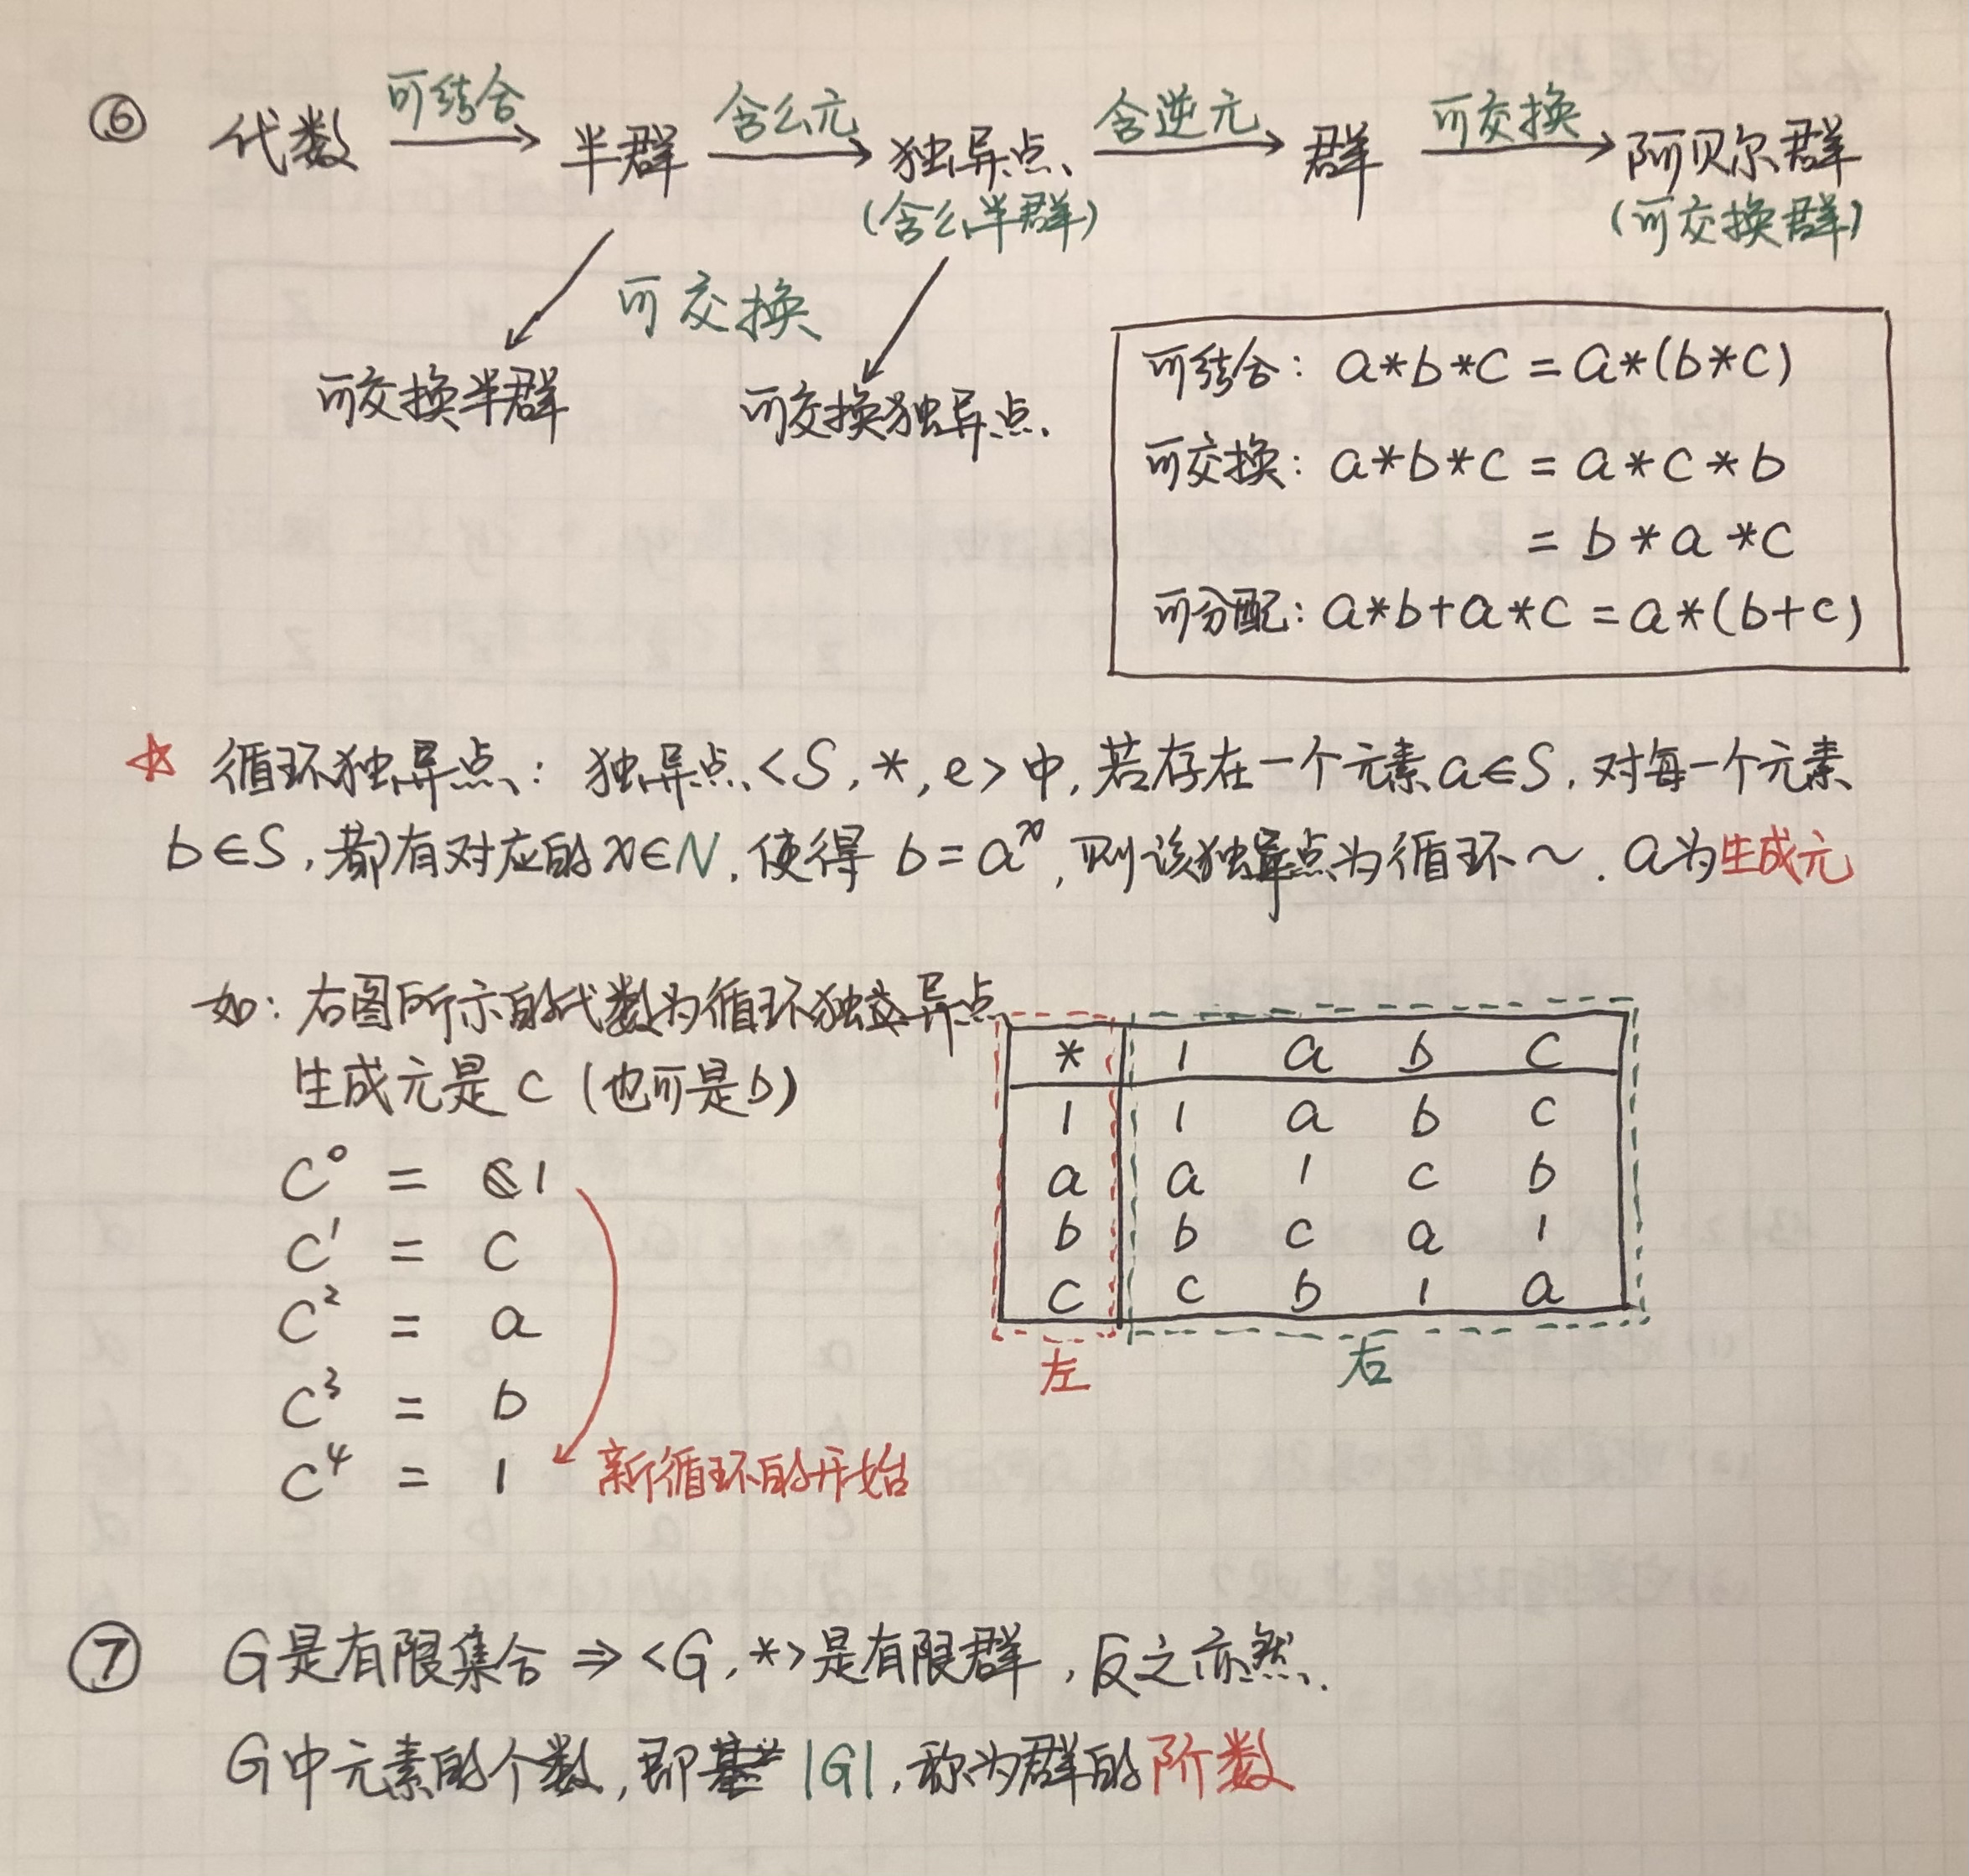 ⑥ 代数 可结合 半群 含幺元 独异点 含逆元 群 可交换 阿贝尔群
(含幺半群) (可交换群)
可交换
可交换半群 可交换独异点
可结合: a*b*c = a*(b*c)
可交换: a*b*c = a*c*b
= b*a*c
可分配: a*b+a*c = a*(b+c)
☆ 循环独异点: 独异点<S, *, e>中, 若存在一个元素a∈S, 对每一个元素
b∈S, 都有对应的x∈N, 使得 b=aˣ, 则该独异点为循环~. a为生成元
如: 右图所示的代数为循环独异点
生成元是 c (也可是b)
c⁰ = 1
c¹ = c
c² = a
c³ = b
c⁴ = 1 新循环的开始
* 1 a b c
1 1 a b c
a a 1 c b
b b c a 1
c c b 1 a
左 右
⑦ G是有限集合 ⇒ <G, *>是有限群, 反之亦然.
G中元素的个数, 即 |G|, 称为群的阶数